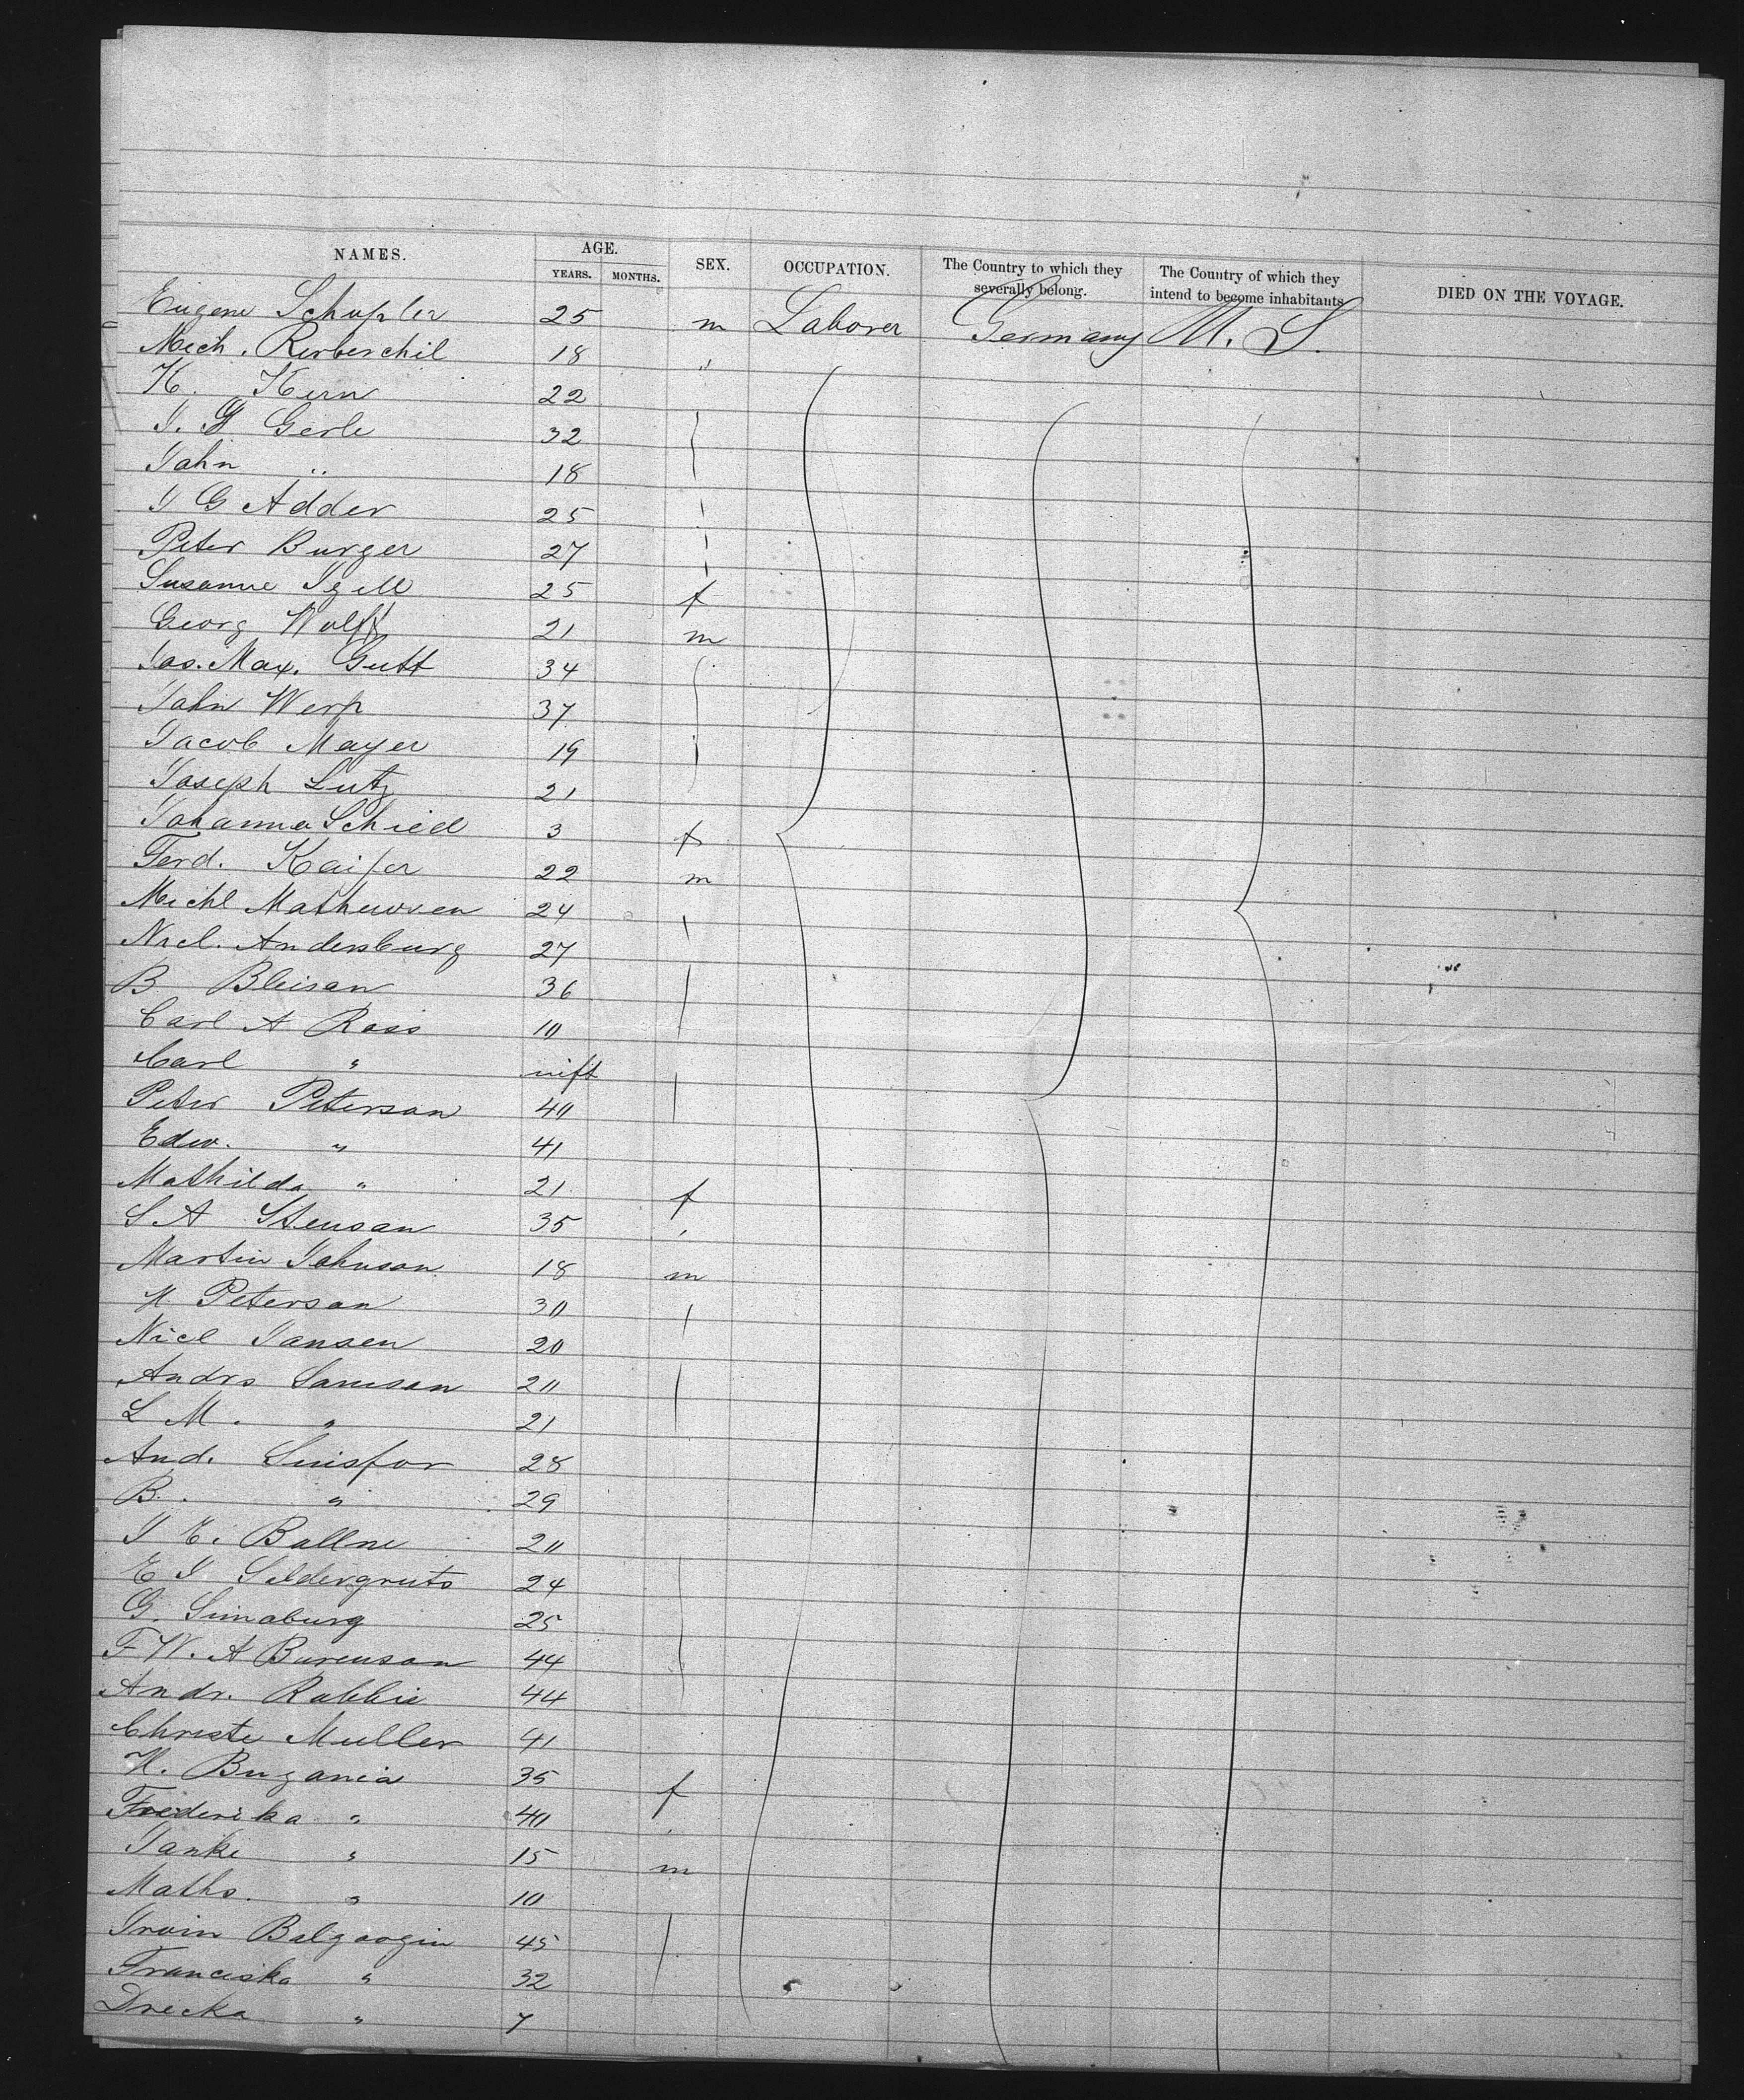 NAMES. AGE. SEX. OCCUPATION. The Country to which they severally belong. The Country of which they intend to become inhabitants DIED ON THE VOYAGE.
YEARS. MONTHS.
Eugene Schupler 25 m Laborer Germany U. S.
Mich. Rerberchil 18 "
K. Kern 22
J. G Gerle 32
John " 18
J G Adder 25
Peter Burger 27
Susanne Igell 25 f
Georg Wolff 21 m
Jos. Max. Gutt 34
John Werp 37
Jacob Mayer 19
Joseph Lutz 21
Johanna Schied 3 f
Ferd. Kaiser 22 m
Michl Mathewsen 24
Nicl. Andersburg 27
B. Bleisan 36
Carl A Ross 10
Carl " inft
Peter Peterson 40
Edw. " 41
Mathilda " 21 f
S A Stensan 35 "
Martin Johnson 18 m
N. Peterson 30
Nicl Jansen 20
Andrs Samson 20
L M. " 21
And. Sinsfor 28
B. " 29
J E. Ballne 20
E J Seldergruts 24
G. Simaburg 25
F W. A Burenson 44
Andr. Robbie 44
Christe Muller 41
H. Bugania 35 f
Frederika " 40
Janke " 15 m
Maths. " 10
Irvin Balgoogin 45
Franciska " 32
Drecka " 7